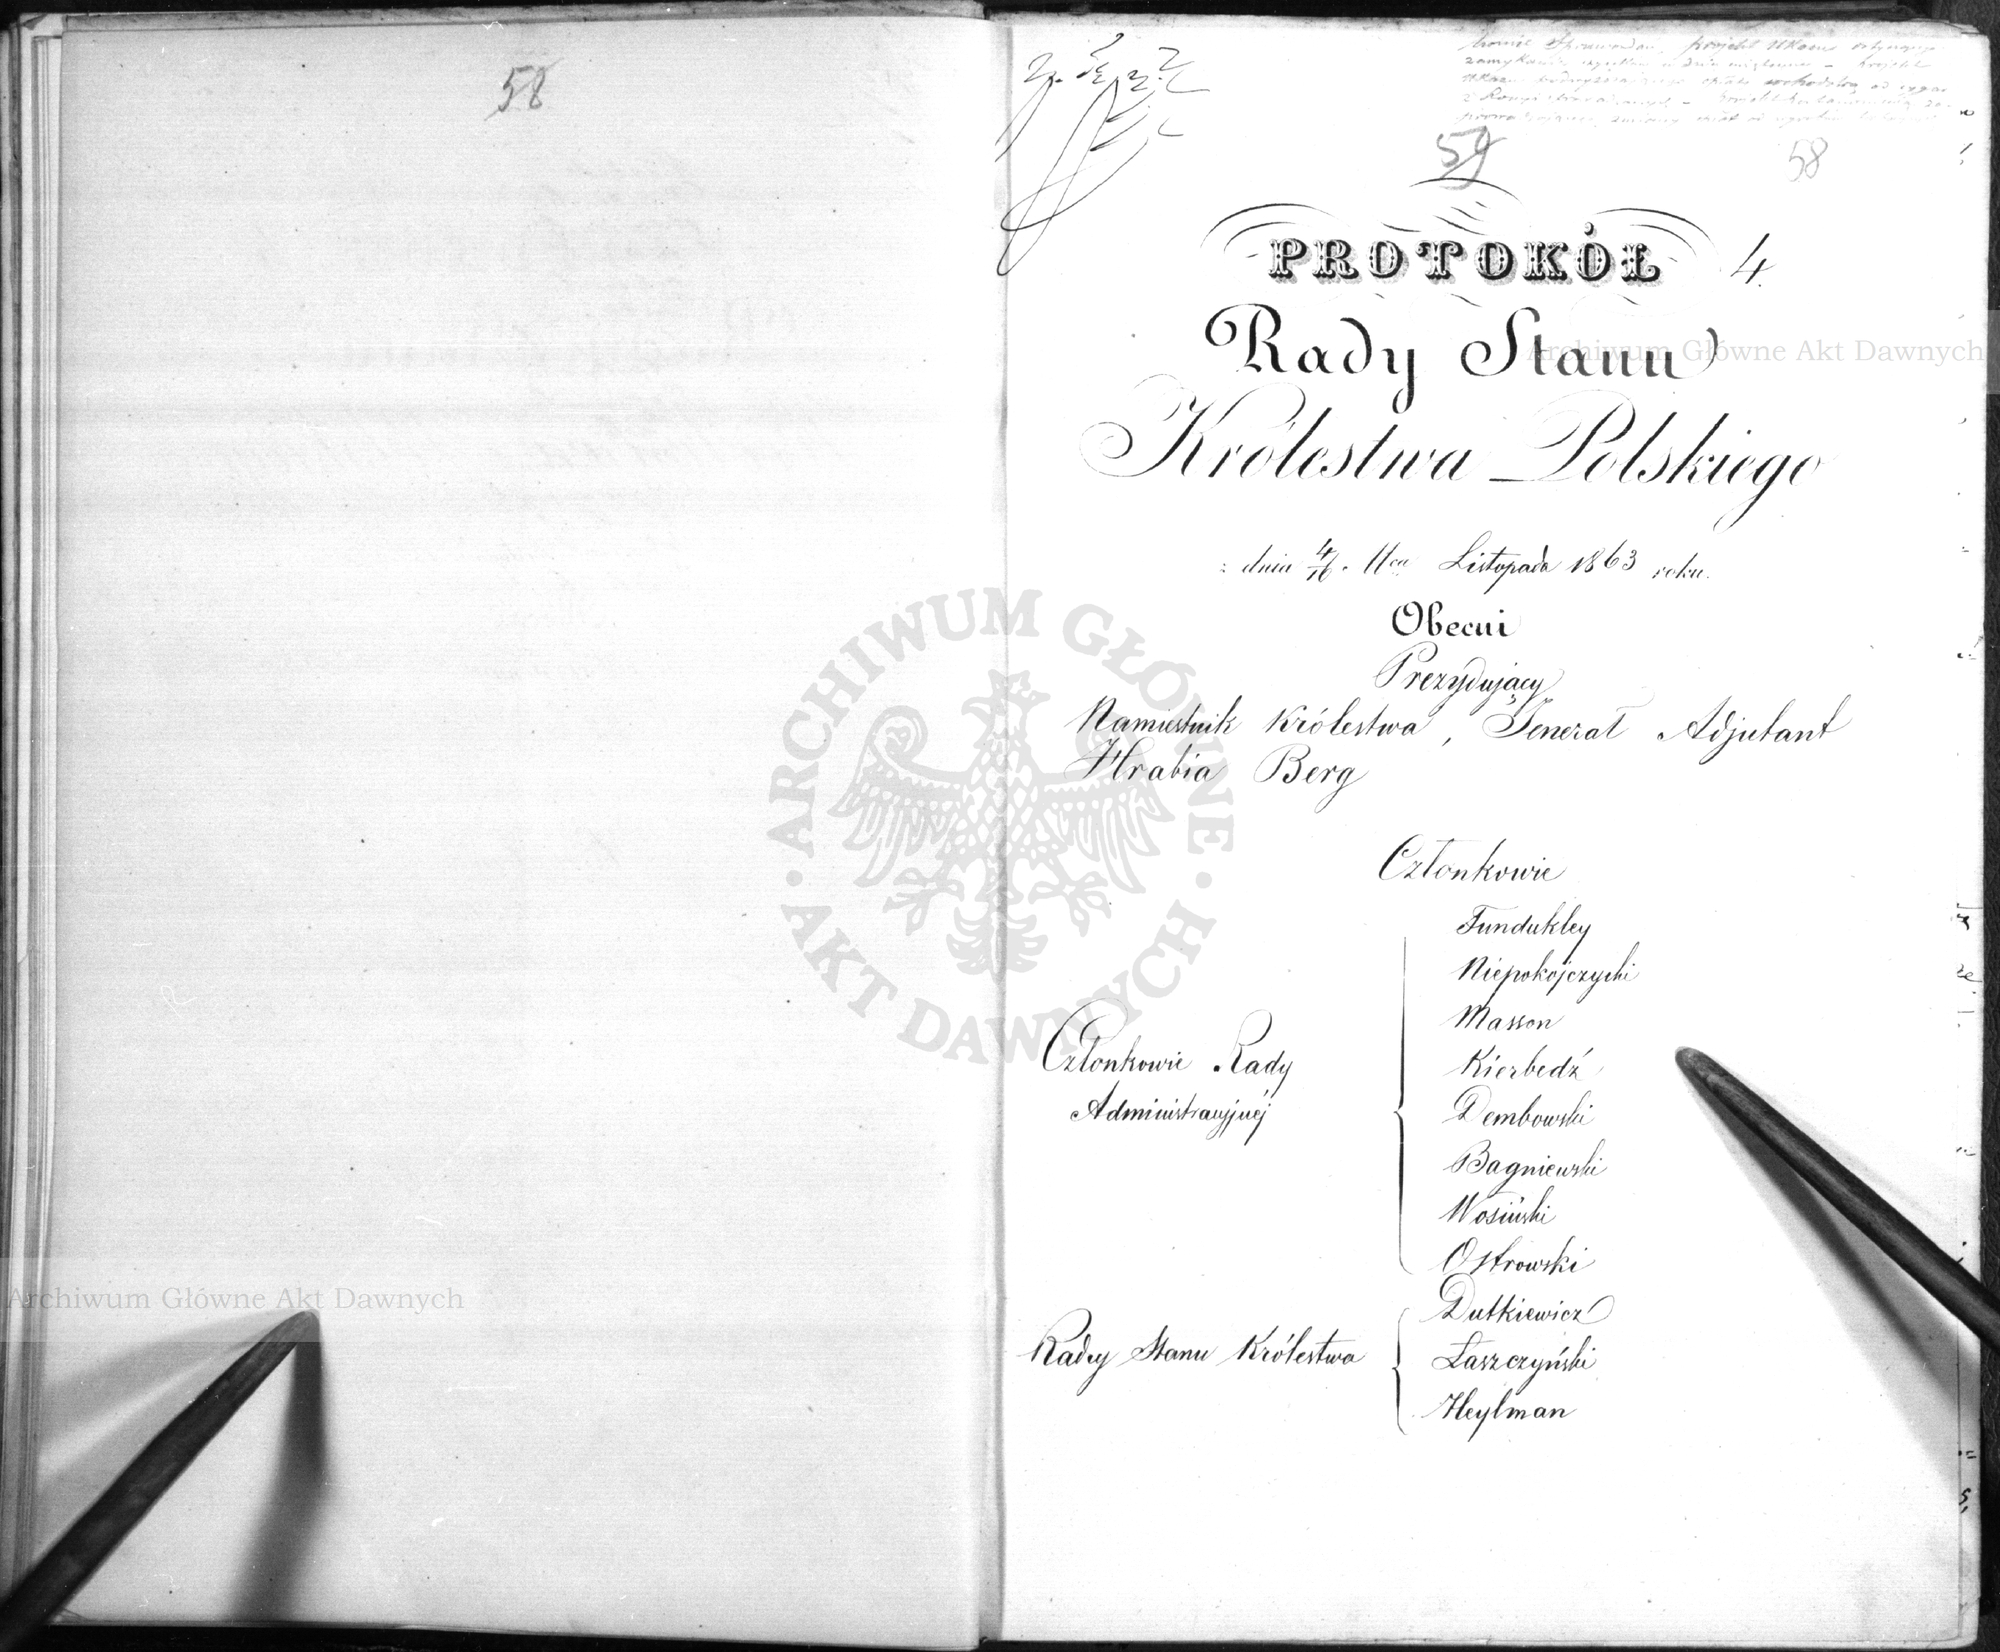 58
projekt
59
58
PROTOKÓŁ 4.
Rady Stanu
Królestwa Polskiego
z dnia 4/16 Mca Listopada 1863 roku.
Obecni
Prezydujący
Namiestnik Królestwa, Jenerał Adjutant
Hrabia Berg
Członkowie
Członkowie Rady
Administracyjnéj
Fundukley
Niepokojczycki
Masson
Kierbedź
Dembowski
Bagniewski
Wosiński
Ostrowski
Radcy Stanu Królestwa
Dutkiewicz
Łaszczyński
Heylman
Archiwum Główne Akt Dawnych
ARCHIWUM GŁÓWNE
AKT DAWNYCH
Archiwum Główne Akt Dawnych